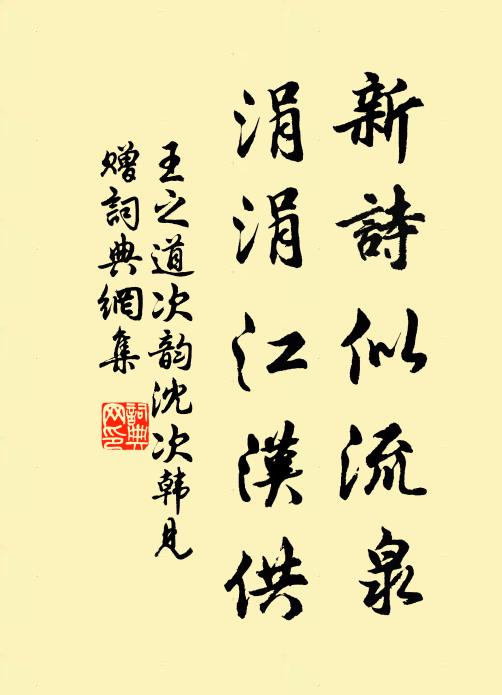 新詩似流泉
涓涓江漢供
王之道次韵沈次韩見
赠詞典網集
詞典網印